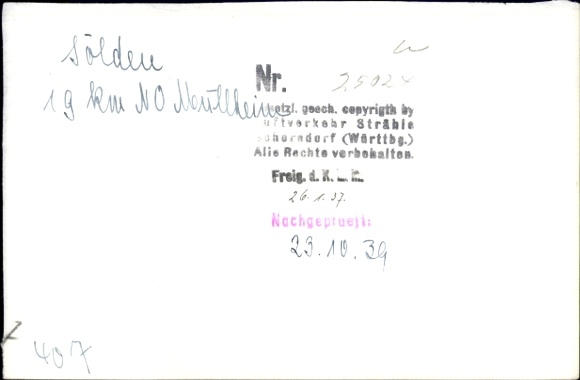 Sölden
19 km NO Müllheim
Nr.
Gesetzl. gesch. copyrigth by
Luftverkehr Strähle
Schorndorf (Württbg.)
Alle Rechte vorbehalten.
Freig. d. R. L. M.
26.1.37.
Nachgeprueft:
23.10.39
407